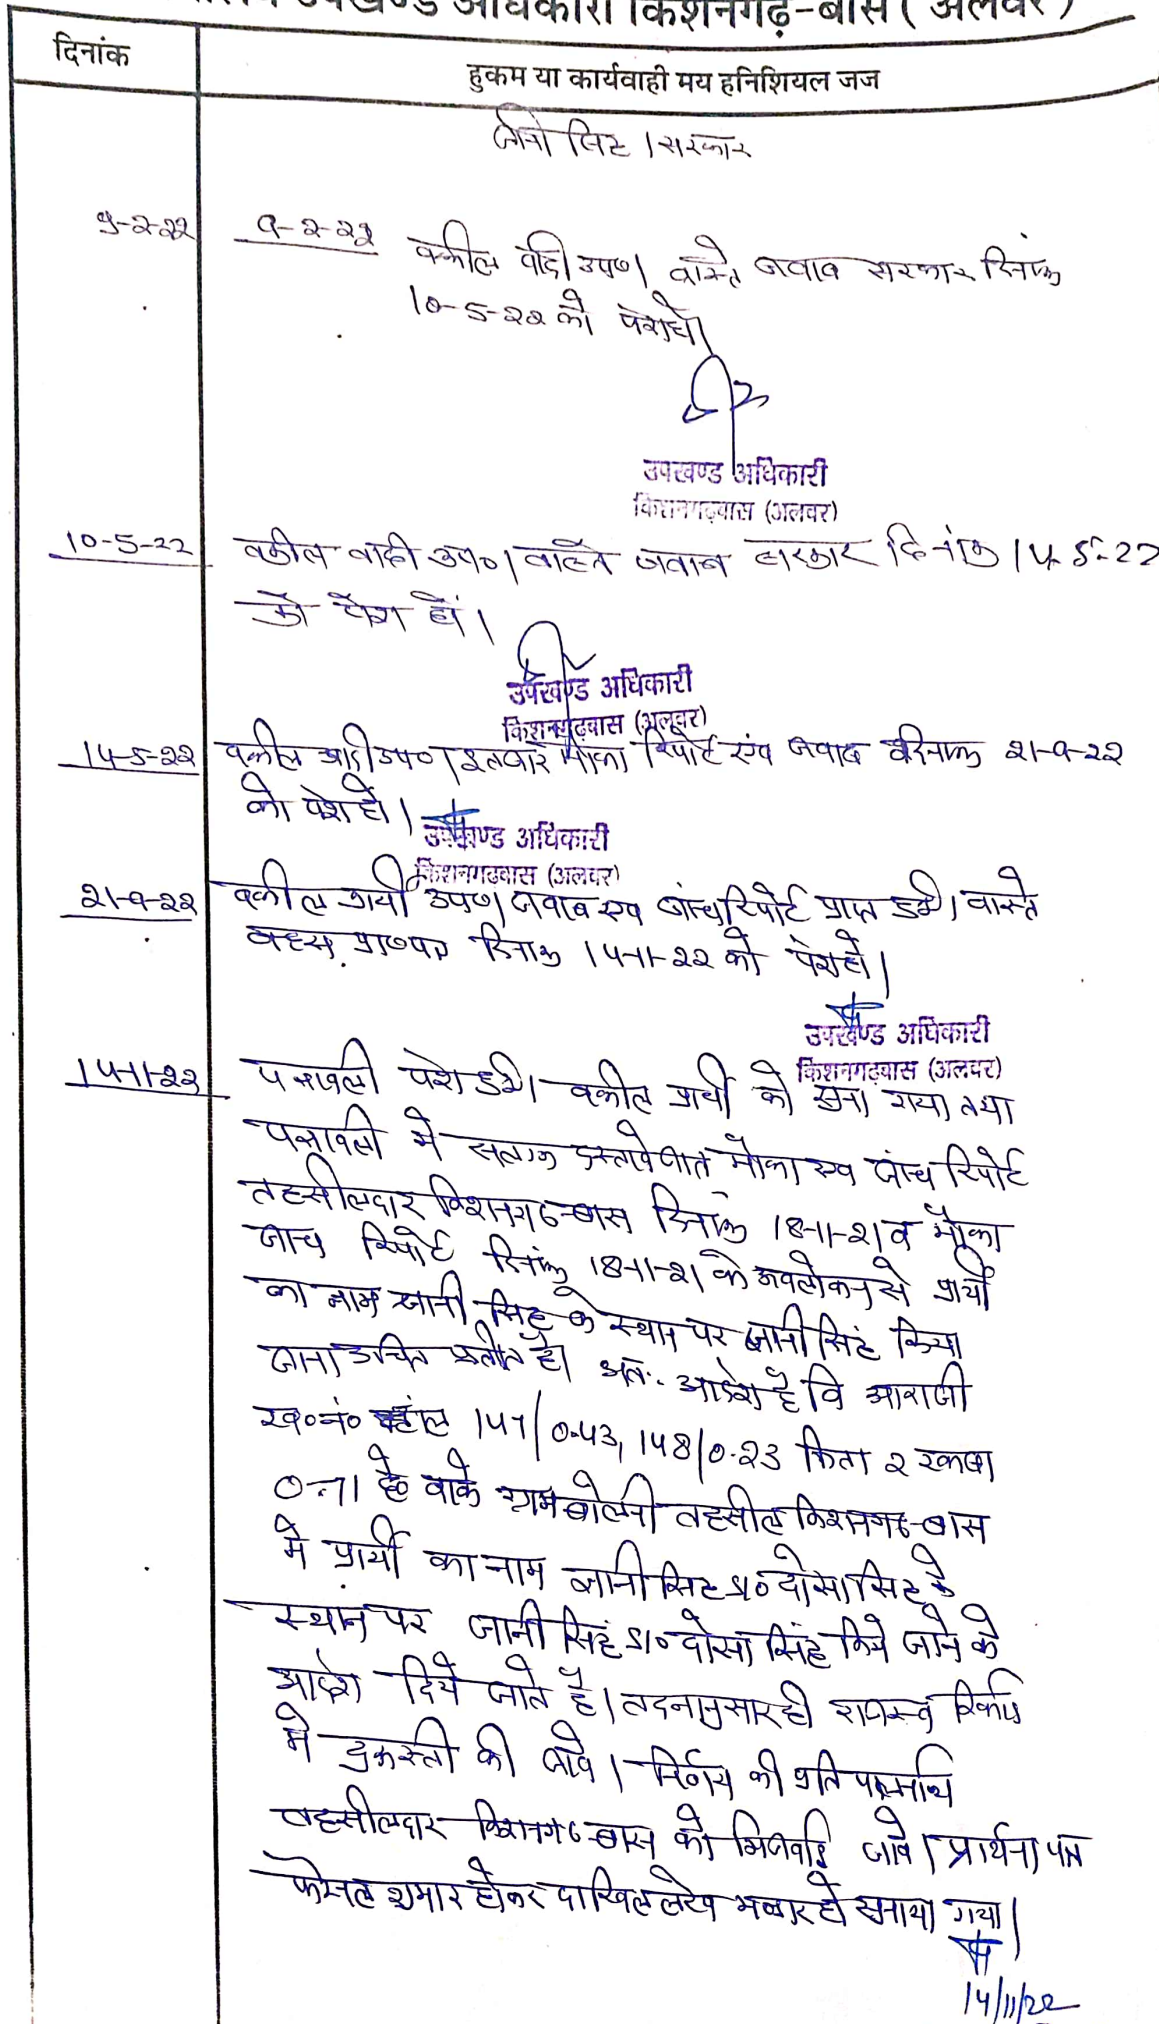 उपखण्ड अधिकारी किशनगढ़-बास ( अलवर )
दिनांक
हुकम या कार्यवाही मय हनिशियल जज
सिंह / सरकार
9-2-22
9-2-22
वकील वादी उप०। वास्ते जवाब सरकार दिनांक
10-5-22 को पेश हो।
उपखण्ड अधिकारी
किशनगढ़बास (अलवर)
10-5-22 वकील वादी उप०। वास्ते जवाब सरकार दिनांक 14-5-22
को पेश हों।
उपखण्ड अधिकारी
किशनगढ़बास (अलवर)
14-5-22 वकील वादी उप०। इन्तजार मौका रिपोर्ट एंव जवाब दिनांक 21-9-22
को पेश हो।
उपखण्ड अधिकारी
किशनगढ़बास (अलवर)
21-9-22 वकील प्रार्थी उप०। जवाब एव जांच रिपोर्ट प्राप्त हुई। वास्ते
बहस प्रा०पत्र दिनांक 14-11-22 को पेश हो।
उपखण्ड अधिकारी
किशनगढ़बास (अलवर)
14-11-22 पत्रावली पेश हुई। वकील प्रार्थी को सुना गया तथा
पत्रावली मे सलग्न दस्तावेजात मौका एव जांच रिपोर्ट
तहसीलदार किशनगढ-बास दिनांक 18-11-21 व मौका
जाच रिपोर्ट दिनांक 18-11-21 के अवलोकन से प्रार्थी
का नाम सिंह के स्थान पर जानी सिंह किया
जाना उचित प्रतीत है। अतः आदेश है कि आराजी
ख०नं० 147/0.43, 148/0.23 किता 2 रकबा
0.71 है० वाके ग्राम बोलनी तहसील किशनगढ-बास
मे प्रार्थी का नाम सिंह S/० दोसा सिंह के
स्थान पर जानी सिंह S/० दोसा सिंह किये जाने के
आदेश दिये जाते है। तदनानुसार ही राजस्व रिकॉर्ड
मे दुरूस्ती की जावे। निर्णय की प्रति
तहसीलदार किशनगढ-बास को भिजवाई जावे। प्रार्थना पत्र
फैसल शुमार होकर दाखिल लेख भण्डार हो सुनाया गया।
14/11/22